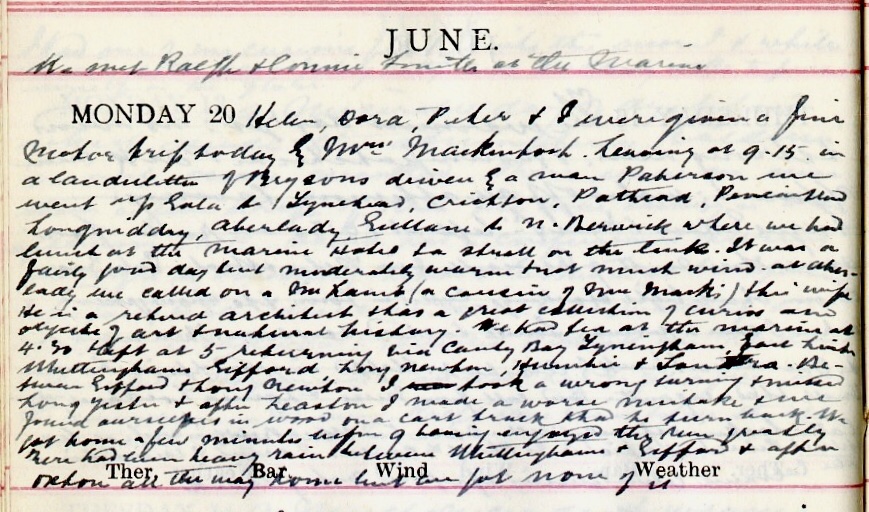 JUNE.
We met Ralph & Connie Smith at the Marine
MONDAY 20 Helen, Dora, Peter & I were given a fine
motor trip today by Mrs Mackintosh. leaving at 9.15. in
a landaulette of Brysons driven by a man Paterson we
went up Gala to Tynehead, Crichton, Pathead, Pencaitland
Longniddry, Aberlady, Gullane to N. Berwick where we had
lunch at the Marine Hotel & a stroll on the links. It was a
fairly good day but moderately warm & not much wind. at Aber-
lady we called on a Mr Lamb (a cousin of Mrs Macks) & his wife
He is a retired architect & has a great collection of curios and
objects of art & natural history. We had tea at the marine at
4.30 & left at 5 returning via Canty Bay Tyningham, East Linton
Whittinghame Gifford Long Newton, Humbie & Soutra. Be-
tween Gifford & Long Newton I took a wrong turning & missed
Long Yester & after Heaston I made a worse mistake & we
found ourselves in wood on a cart track & had to turn back. We
got home a few minutes before 9 having enjoyed the run greatly
There had been heavy rain between Whittinghame & Gifford & after
Ther. Bar. Wind Weather
Oxton all the way home but we got none of it